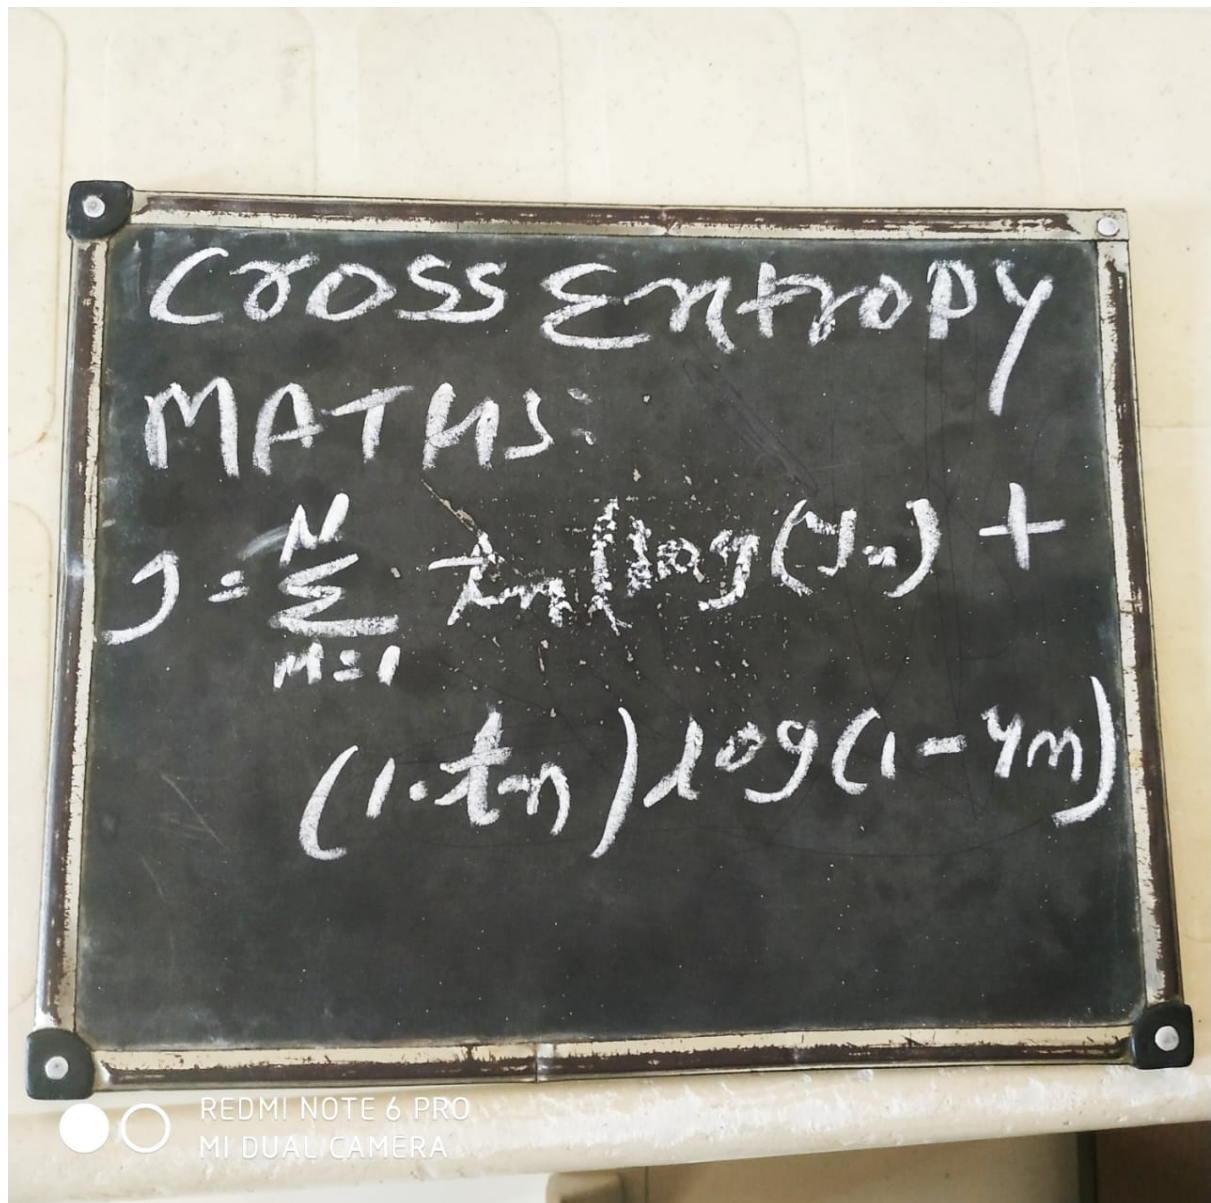 Cross Entropy
MATHS:
J = N Σ n=1 tn (log(yn) +
(1-tn) log(1-yn)
REDMI NOTE 6 PRO
MI DUAL CAMERA